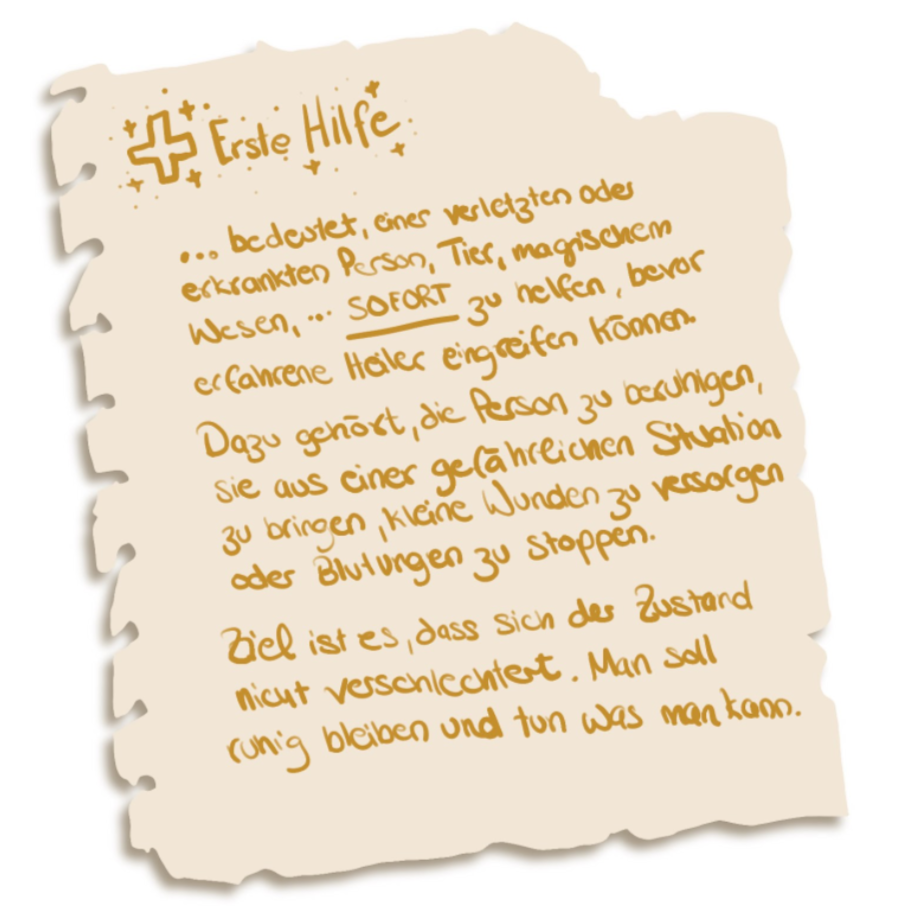 Erste Hilfe
... bedeutet, einer verletzten oder
erkrankten Person, Tier, magischem
Wesen, ... SOFORT zu helfen, bevor
erfahrene Heiler eingreifen können.
Dazu gehört, die Person zu beruhigen,
sie aus einer gefährlichen Situation
zu bringen, kleine Wunden zu versorgen
oder Blutungen zu stoppen.
Ziel ist es, dass sich der Zustand
nicht verschlechtert. Man soll
ruhig bleiben und tun was man kann.